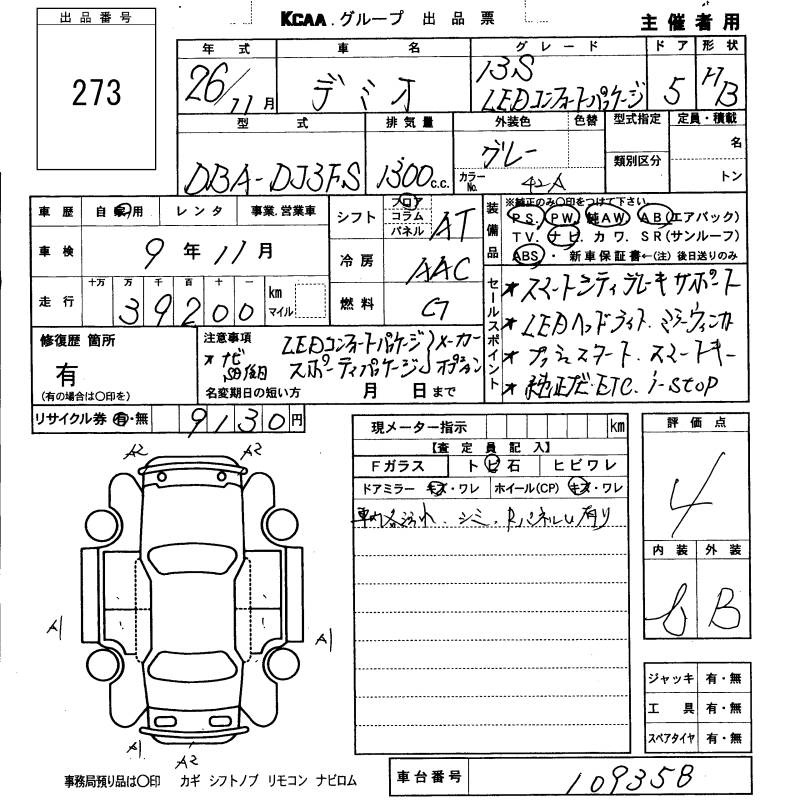 出品番号
273
KCAA.グループ 出品票
主催者用
年式 車名 グレード ドア 形状
26/11月 デミオ 13S LEDコンフォートパッケージ 5 HB
型式 排気量 外装色 色替 型式指定 定員・積載
DBA-DJ3FS 1300c.c. グレー 名
カラーNo. 42A 類別区分 トン
車歴 自家用 レンタ 事業.営業車
シフト フロア コラム パネル AT
装備品 ※純正のみ○印をつけて下さい。
PS. PW. 純AW. AB(エアバック)
TV. ナビ. カワ. SR(サンルーフ)
ABS・新車保証書←(注)後日送りのみ
車検 9年11月
冷房 AAC
走行 十万 万 千 百 十 一
39200 km マイル
燃料
セールスポイント
★スマートシティブレーキサポート
★LEDヘッドライト.ミラーウィンカ
★プッシュスタート.スマートキー
★純正ナビ・ETC. i-stop
修復歴 箇所
有
(有の場合は○印を)
注意事項
LEDコンフォートパッケージ
スポーティパッケージ
メーカーオプション
★ナビ
名変期日の短い方 月 日まで
リサイクル券 有・無 9130円
現メーター指示 km
【査定員記入】
Fガラス トビ石 ヒビワレ
ドアミラー キズ・ワレ ホイール(CP) キズ・ワレ
車内汚れ.シミ.
評価点
4
内装 外装
B
A2 A2
A1 A1
A1 A2
ジャッキ 有・無
工具 有・無
スペアタイヤ 有・無
事務局預り品は○印 カギ シフトノブ リモコン ナビロム
車台番号 109358